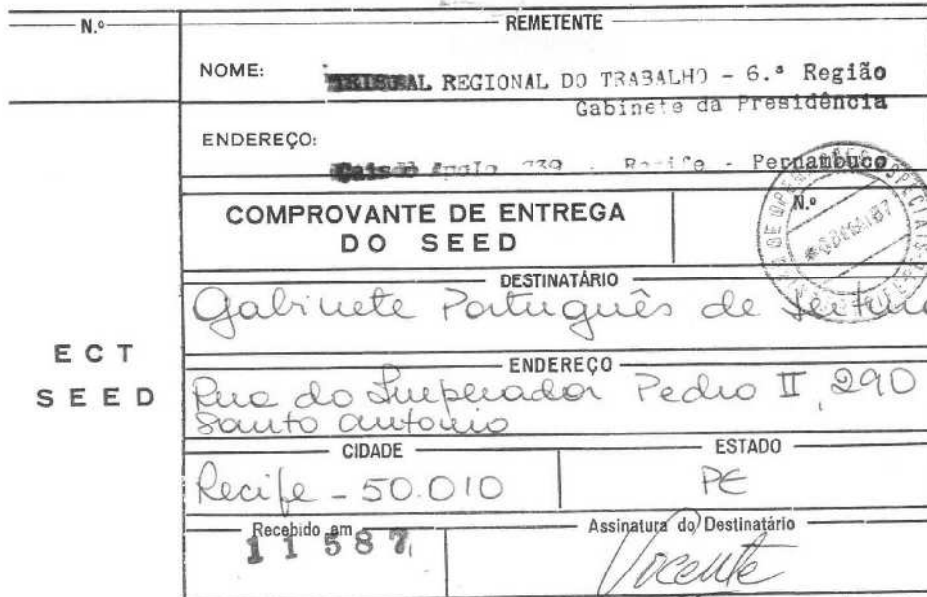 N.º
REMETENTE
NOME:
TRIBUNAL REGIONAL DO TRABALHO - 6.ª Região
Gabinete da Presidência
ENDEREÇO:
Cais do Apolo 739 - Recife - Pernambuco
COMPROVANTE DE ENTREGA
DO SEED
N.º
DESTINATÁRIO
Gabinete Português de Leitura
ECT
SEED
ENDEREÇO
Rua do Imperador Pedro II, 290
Santo Antonio
CIDADE
ESTADO
Recife - 50.010
PE
Recebido em
Assinatura do Destinatário
11587
Vicente